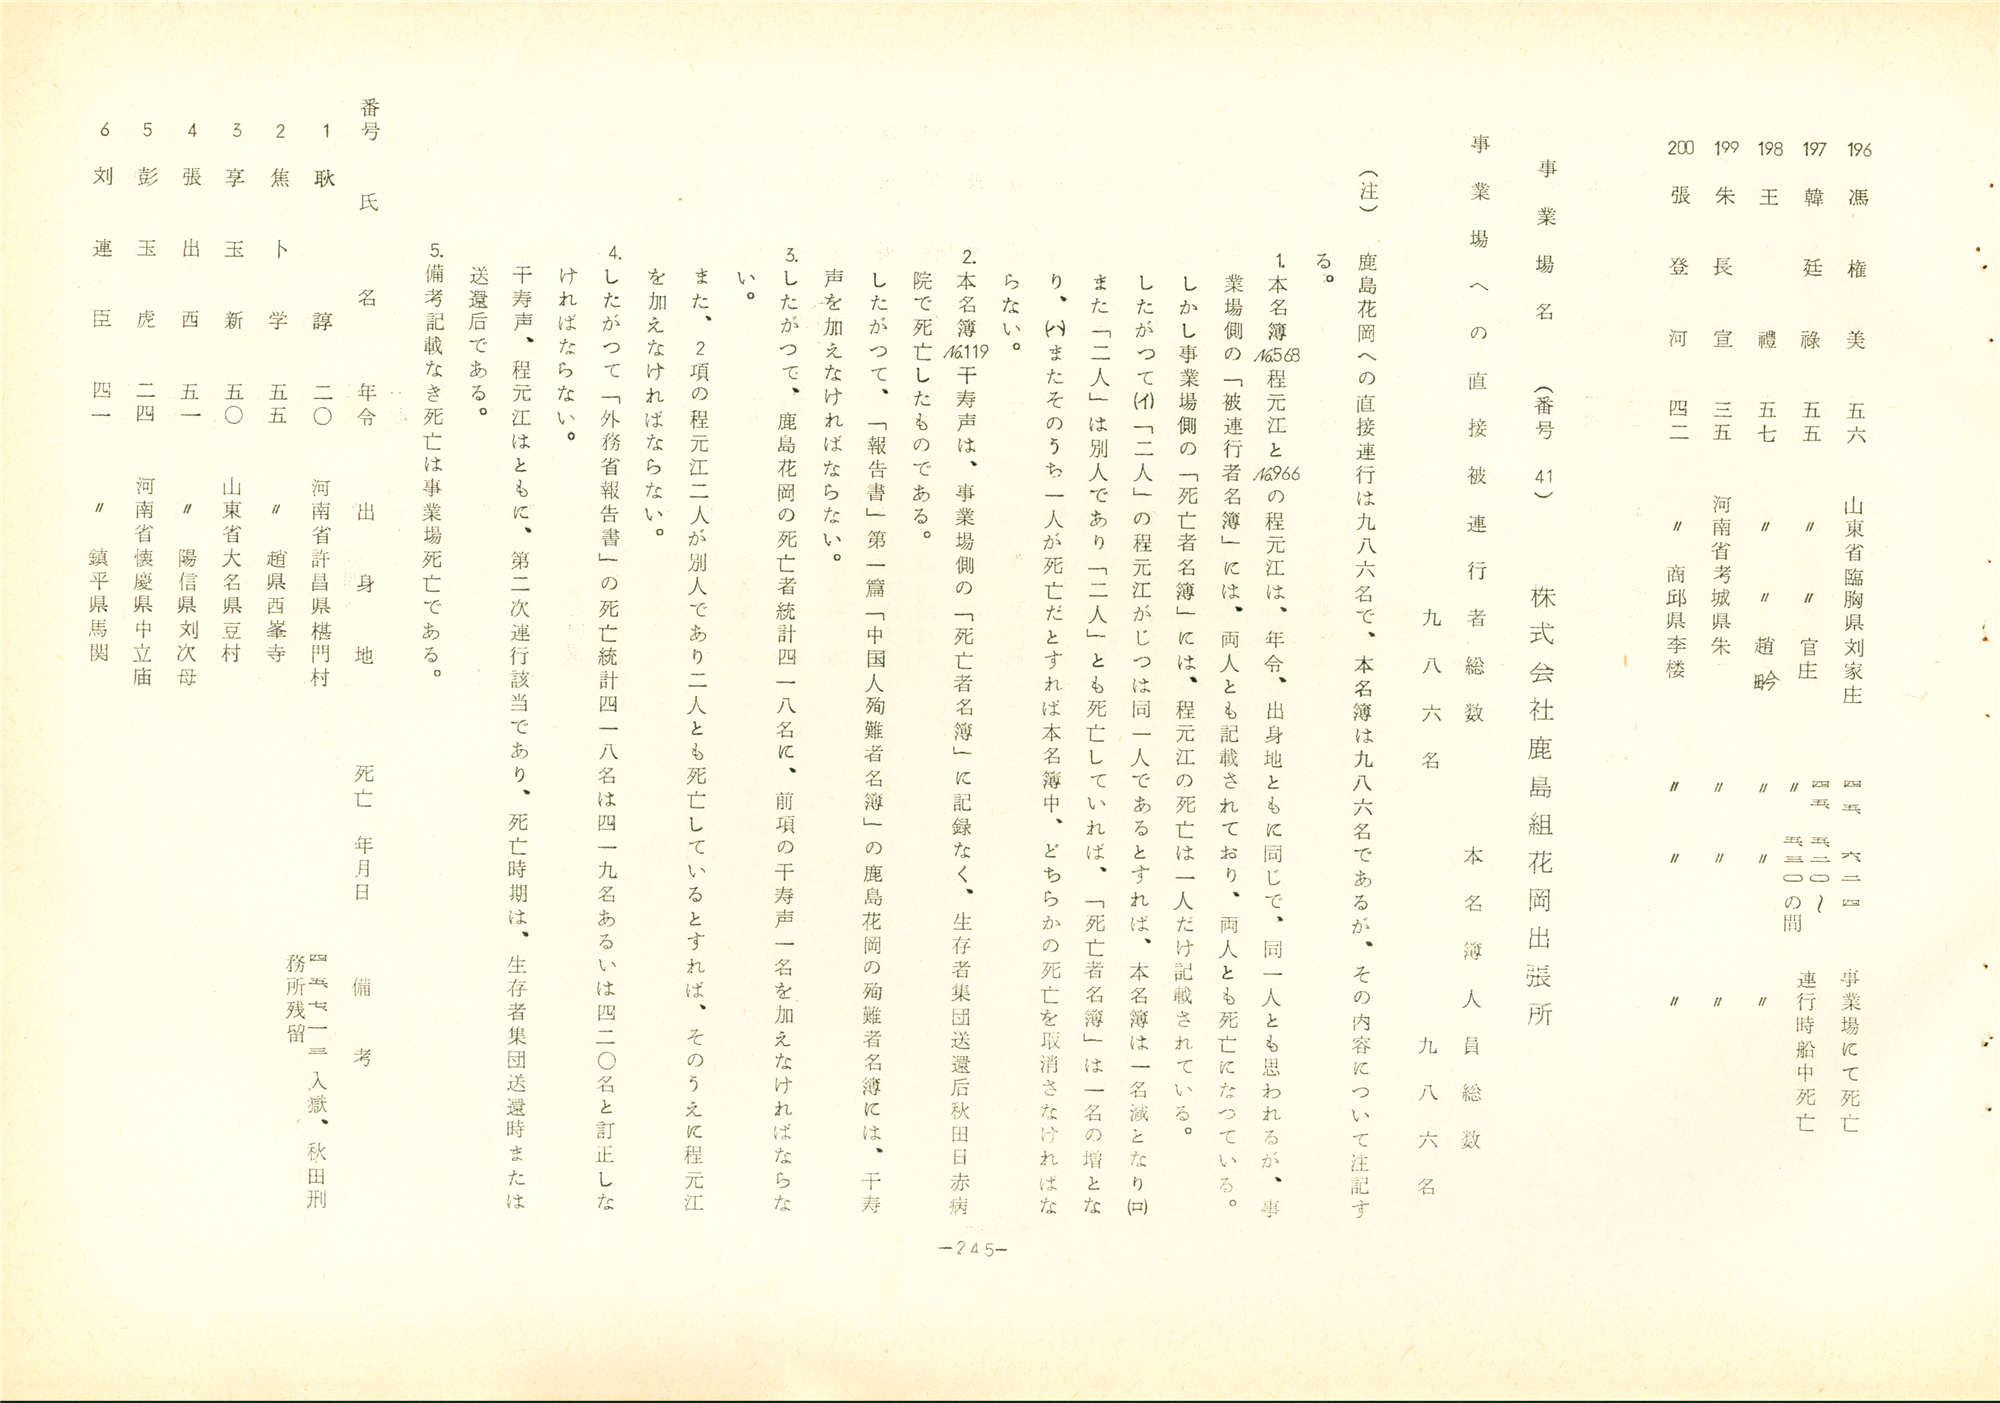 196 馮権美 五六 山東省臨朐県刘家庄 四五、六、二四 事業場にて死亡
197 韓廷祿 五五 〃 〃 官庄 四五、五、二〇～〃五、三〇の間 連行時船中死亡
198 王禮 五七 〃 〃 趙 〃 〃 〃
199 朱長宣 三五 河南省考城県朱 〃 〃 〃
200 張登河 四二 〃 商邱県李楼 〃 〃 〃
事業場名 (番号 41) 株式会社鹿島組花岡出張所
事業場への直接被連行者総数 本名簿人員総数
九八六名 九八六名
(注) 鹿島花岡への直接連行は九八六名で、本名簿は九八六名であるが、その内容について注記す
る。
1. 本名簿No.568程元江とNo.966の程元江は、年令、出身地ともに同じで、同一人とも思われるが、事
業場側の「被連行者名簿」には、両人とも記載されており、両人とも死亡になつている。
しかし事業場側の「死亡者名簿」には、程元江の死亡は一人だけ記載されている。
したがつて(イ)「二人」の程元江がじつは同一人であるとすれば、本名簿は一名減となり(ロ)
また「二人」は別人であり「二人」とも死亡していれば、「死亡者名簿」は一名の増とな
り、(ハ)またそのうち一人が死亡だとすれば本名簿中、どちらかの死亡を取消さなければな
らない。
2. 本名簿No.119干寿声は、事業場側の「死亡者名簿」に記録なく、生存者集団送還后秋田日赤病
院で死亡したものである。
したがつて、「報告書」第一篇「中国人殉難者名簿」の鹿島花岡の殉難者名簿には、干寿
声を加えなければならない。
3. したがつて、鹿島花岡の死亡者統計四一八名に、前項の干寿声一名を加えなければならな
い。
また、2項の程元江二人が別人であり二人とも死亡しているとすれば、そのうえに程元江
を加えなければならない。
4. したがつて「外務省報告書」の死亡統計四一八名は四一九名あるいは四二〇名と訂正しな
ければならない。
干寿声、程元江はともに、第二次連行該当であり、死亡時期は、生存者集団送還時または
送還后である。
5. 備考記載なき死亡は事業場死亡である。
番号 氏名 年令 出身地 死亡年月日 備考
1 耿諄 二〇 河南省許昌県椹門村 四五、七、一三入獄、秋田刑
務所残留
2 焦卜学 五五 〃 趙県西峯寺
3 享玉新 五〇 山東省大名県豆村
4 張出西 五一 〃 陽信県刘次母
5 彭玉虎 二四 河南省懐慶県中立庙
6 刘連臣 四一 〃 鎮平県馬関
—245—